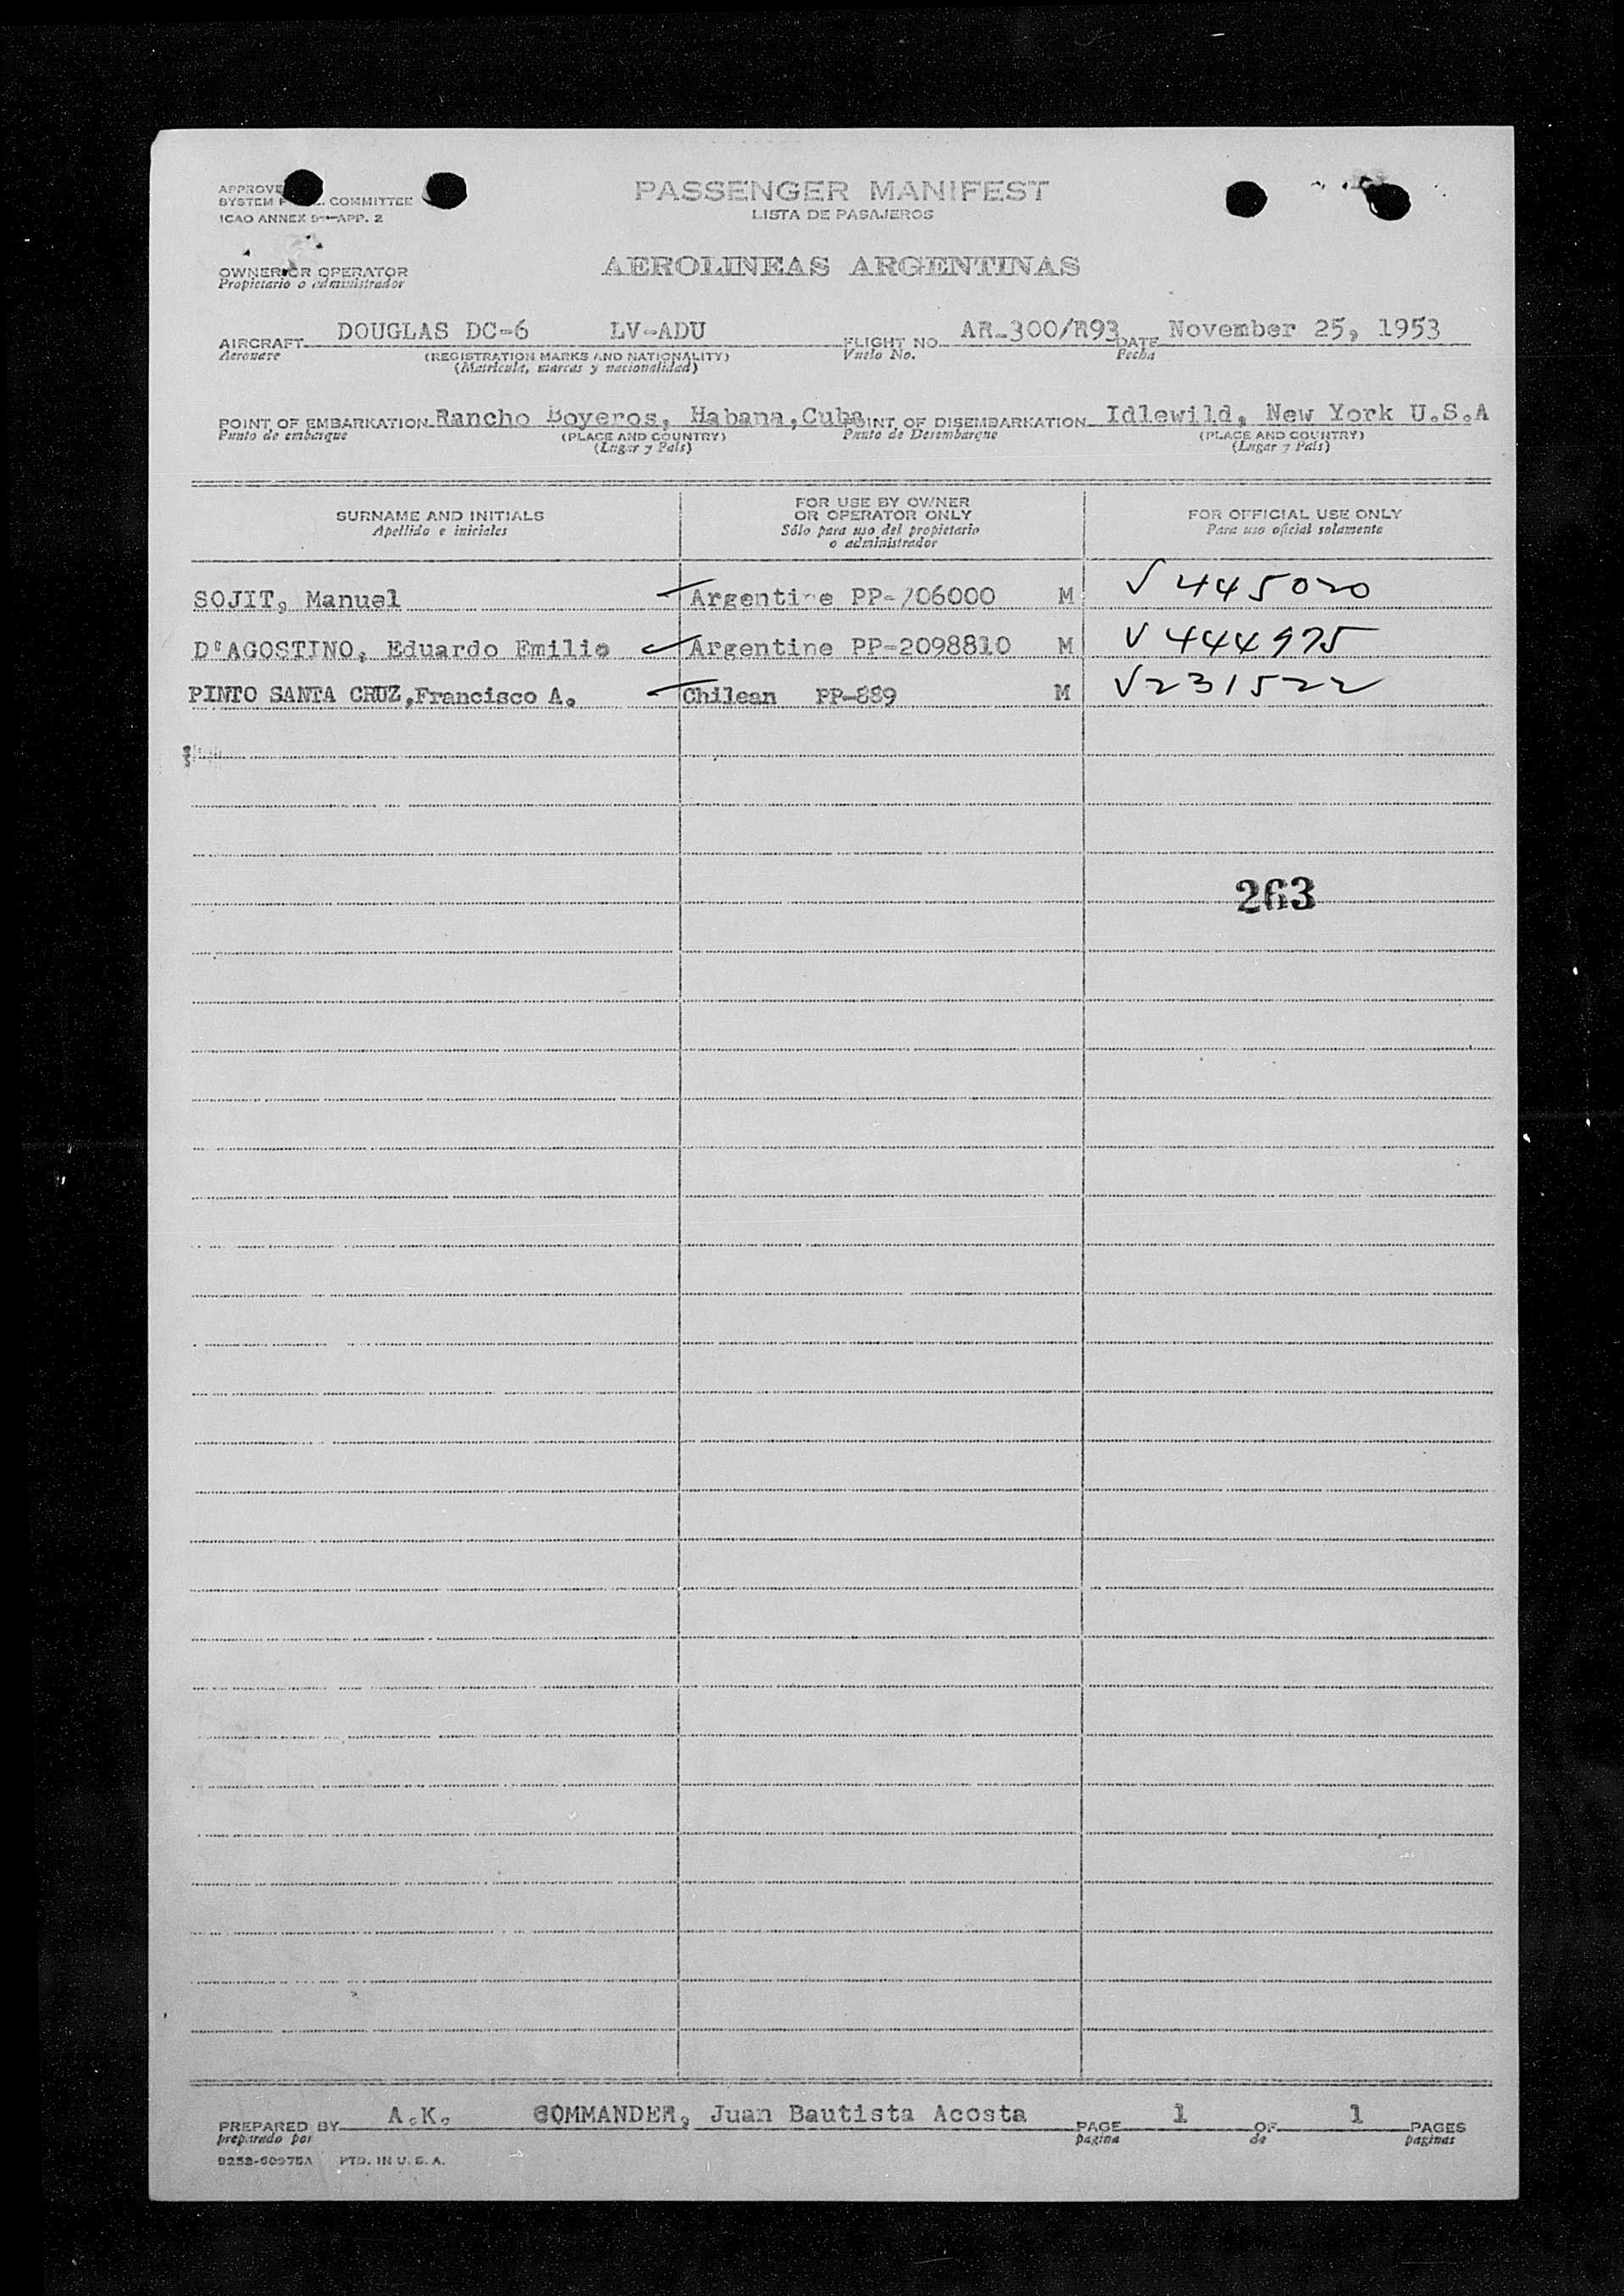 PASSENGER MANIFEST
LISTA DE PASAJEROS
SYSTEM COMMITTEE
ICAO ANNEX 9—APP. 2
OWNER OR OPERATOR
Propietario o administrador
AEROLINEAS ARGENTINAS
AIRCRAFT DOUGLAS DC-6 LV-ADU FLIGHT NO. AR-300/R93 DATE November 25, 1953
Aeronave (REGISTRATION MARKS AND NATIONALITY) Vuelo No. Fecha
(Matrícula, marcas y nacionalidad)
POINT OF EMBARKATION Rancho Boyeros, Habana, Cuba POINT OF DISEMBARKATION Idlewild, New York U.S.A
Punto de embarque (PLACE AND COUNTRY) Punto de Desembarque (PLACE AND COUNTRY)
(Lugar y País) (Lugar y País)
SURNAME AND INITIALS
Apellido e iniciales
FOR USE BY OWNER
OR OPERATOR ONLY
Sólo para uso del propietario
o administrador
FOR OFFICIAL USE ONLY
Para uso oficial solamente
SOJIT, Manuel Argentine PP-706000 M V 445020
D'AGOSTINO, Eduardo Emilio Argentine PP-2098810 M V 444975
PINTO SANTA CRUZ, Francisco A. Chilean PP-889 M V 231522
263
PREPARED BY A.K. COMMANDER, Juan Bautista Acosta PAGE 1 OF 1 PAGES
preparado por pagina de paginas
PTD. IN U. S. A.